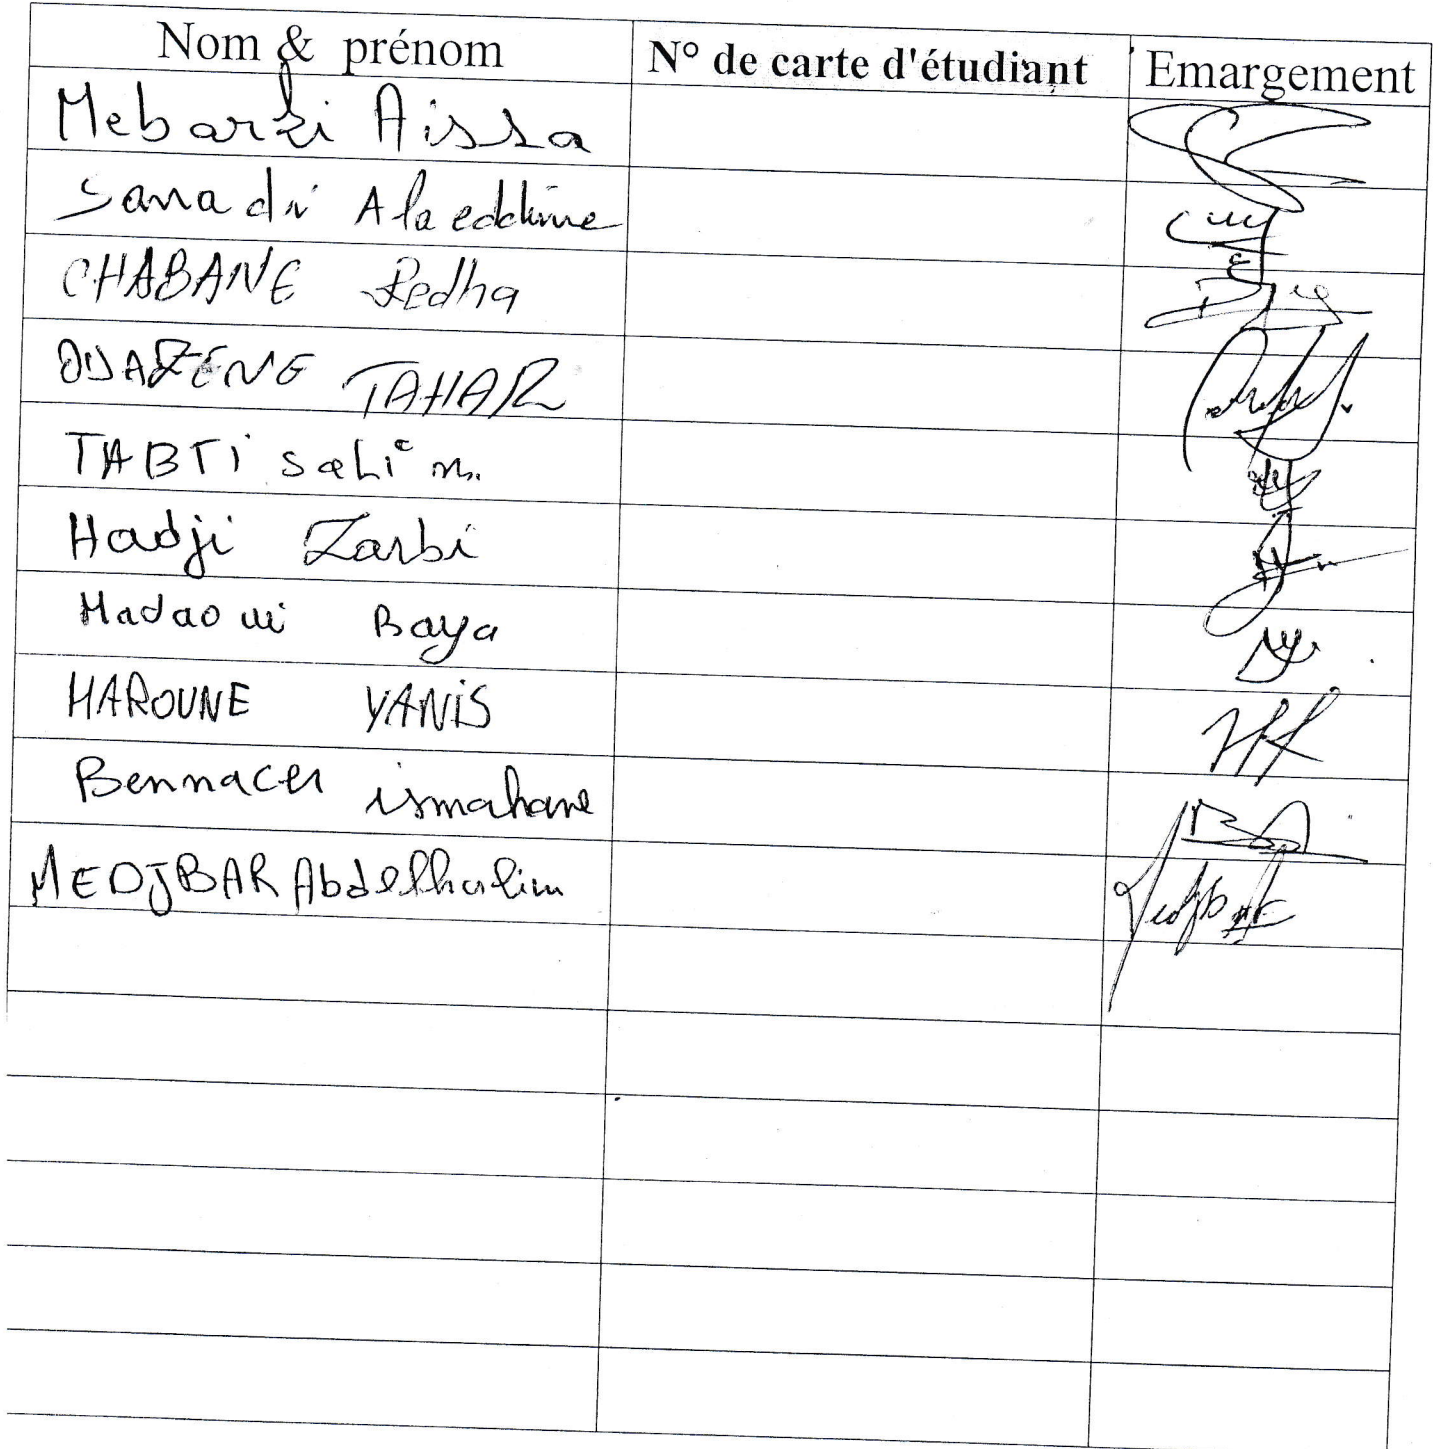 Nom & prénom N° de carte d'étudiant Emargement
Mebarki Aissa
Sanadri Alaeddine
CHABANE Redha
OUAZENE TAHAR
TABTI Salim.
Hadji Zarbi
Madaoui Baya
HAROUNE YANIS
Bennacer ismahane
MEDJBAR Abdelhalim